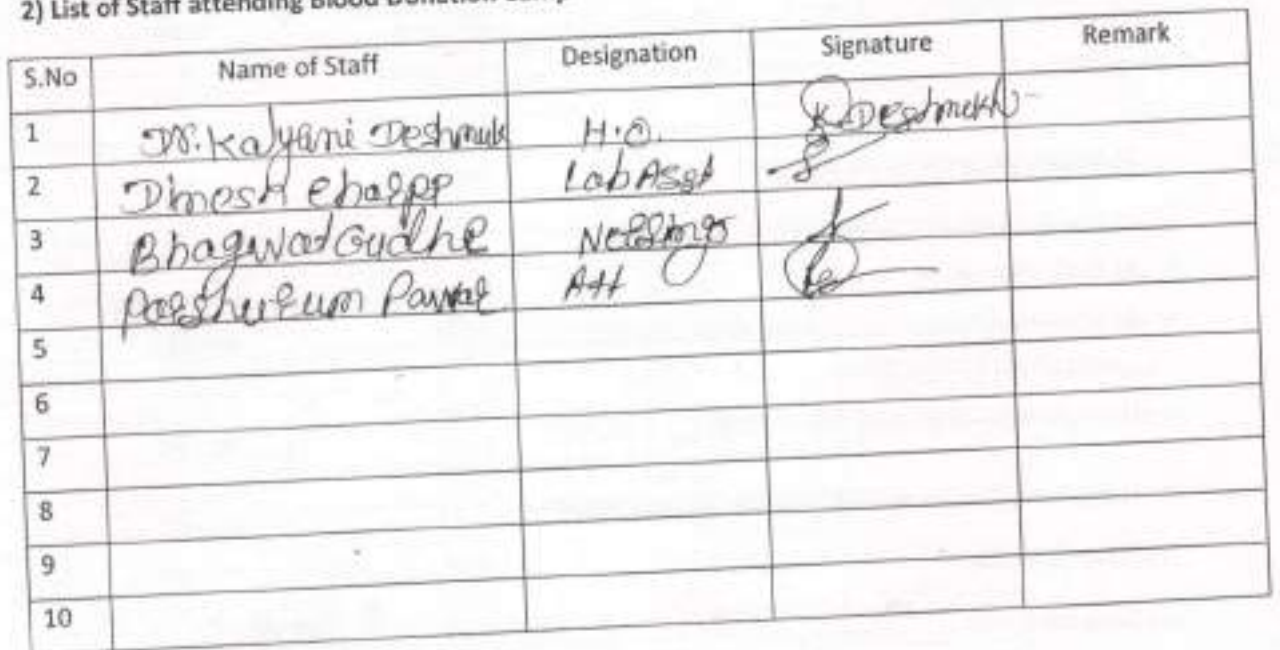 2) List of Staff attending Blood Donation Camp
S.No Name of Staff Designation Signature Remark
1 Dr. Kalyani Deshmukh H.O. K Deshmukh
2 Dinesh Lab Asst
3 Bhagwat Gudhe Nursing
4 Parshuram Pawar Att
5
6
7
8
9
10